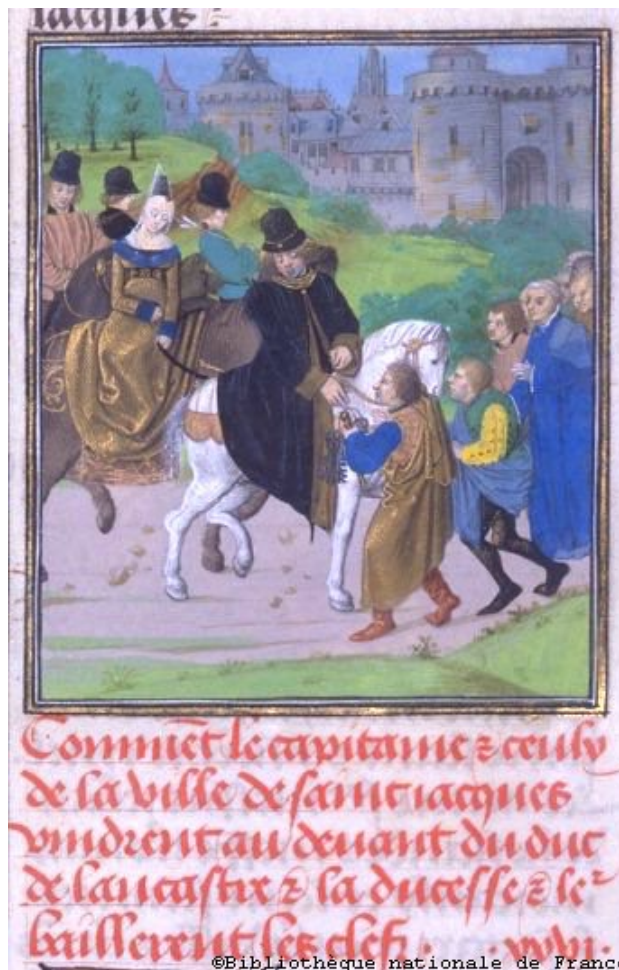 iacques :
Comment le capitaine & ceulx
de la ville de saint iacques
vindrent au deuant du duc
de lancastre & la ducesse & ler
baillerent les clefz . . xxvi.
©Bibliothèque nationale de France